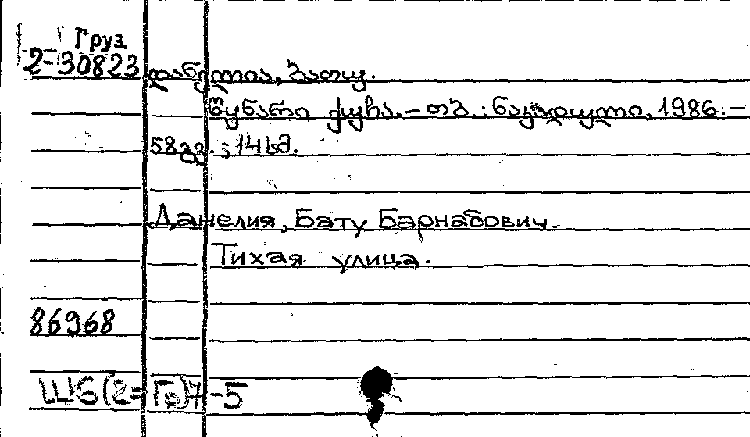 Груз
2-30823 დანელია, ბათუ.
წყნარი ქუჩა. – თბ.: ნაკადული, 1986. –
58გვ.; 14სმ.
Данелия, Бату Барнабович.
Тихая улица.
86968
Ш6(2=Гр)7-5